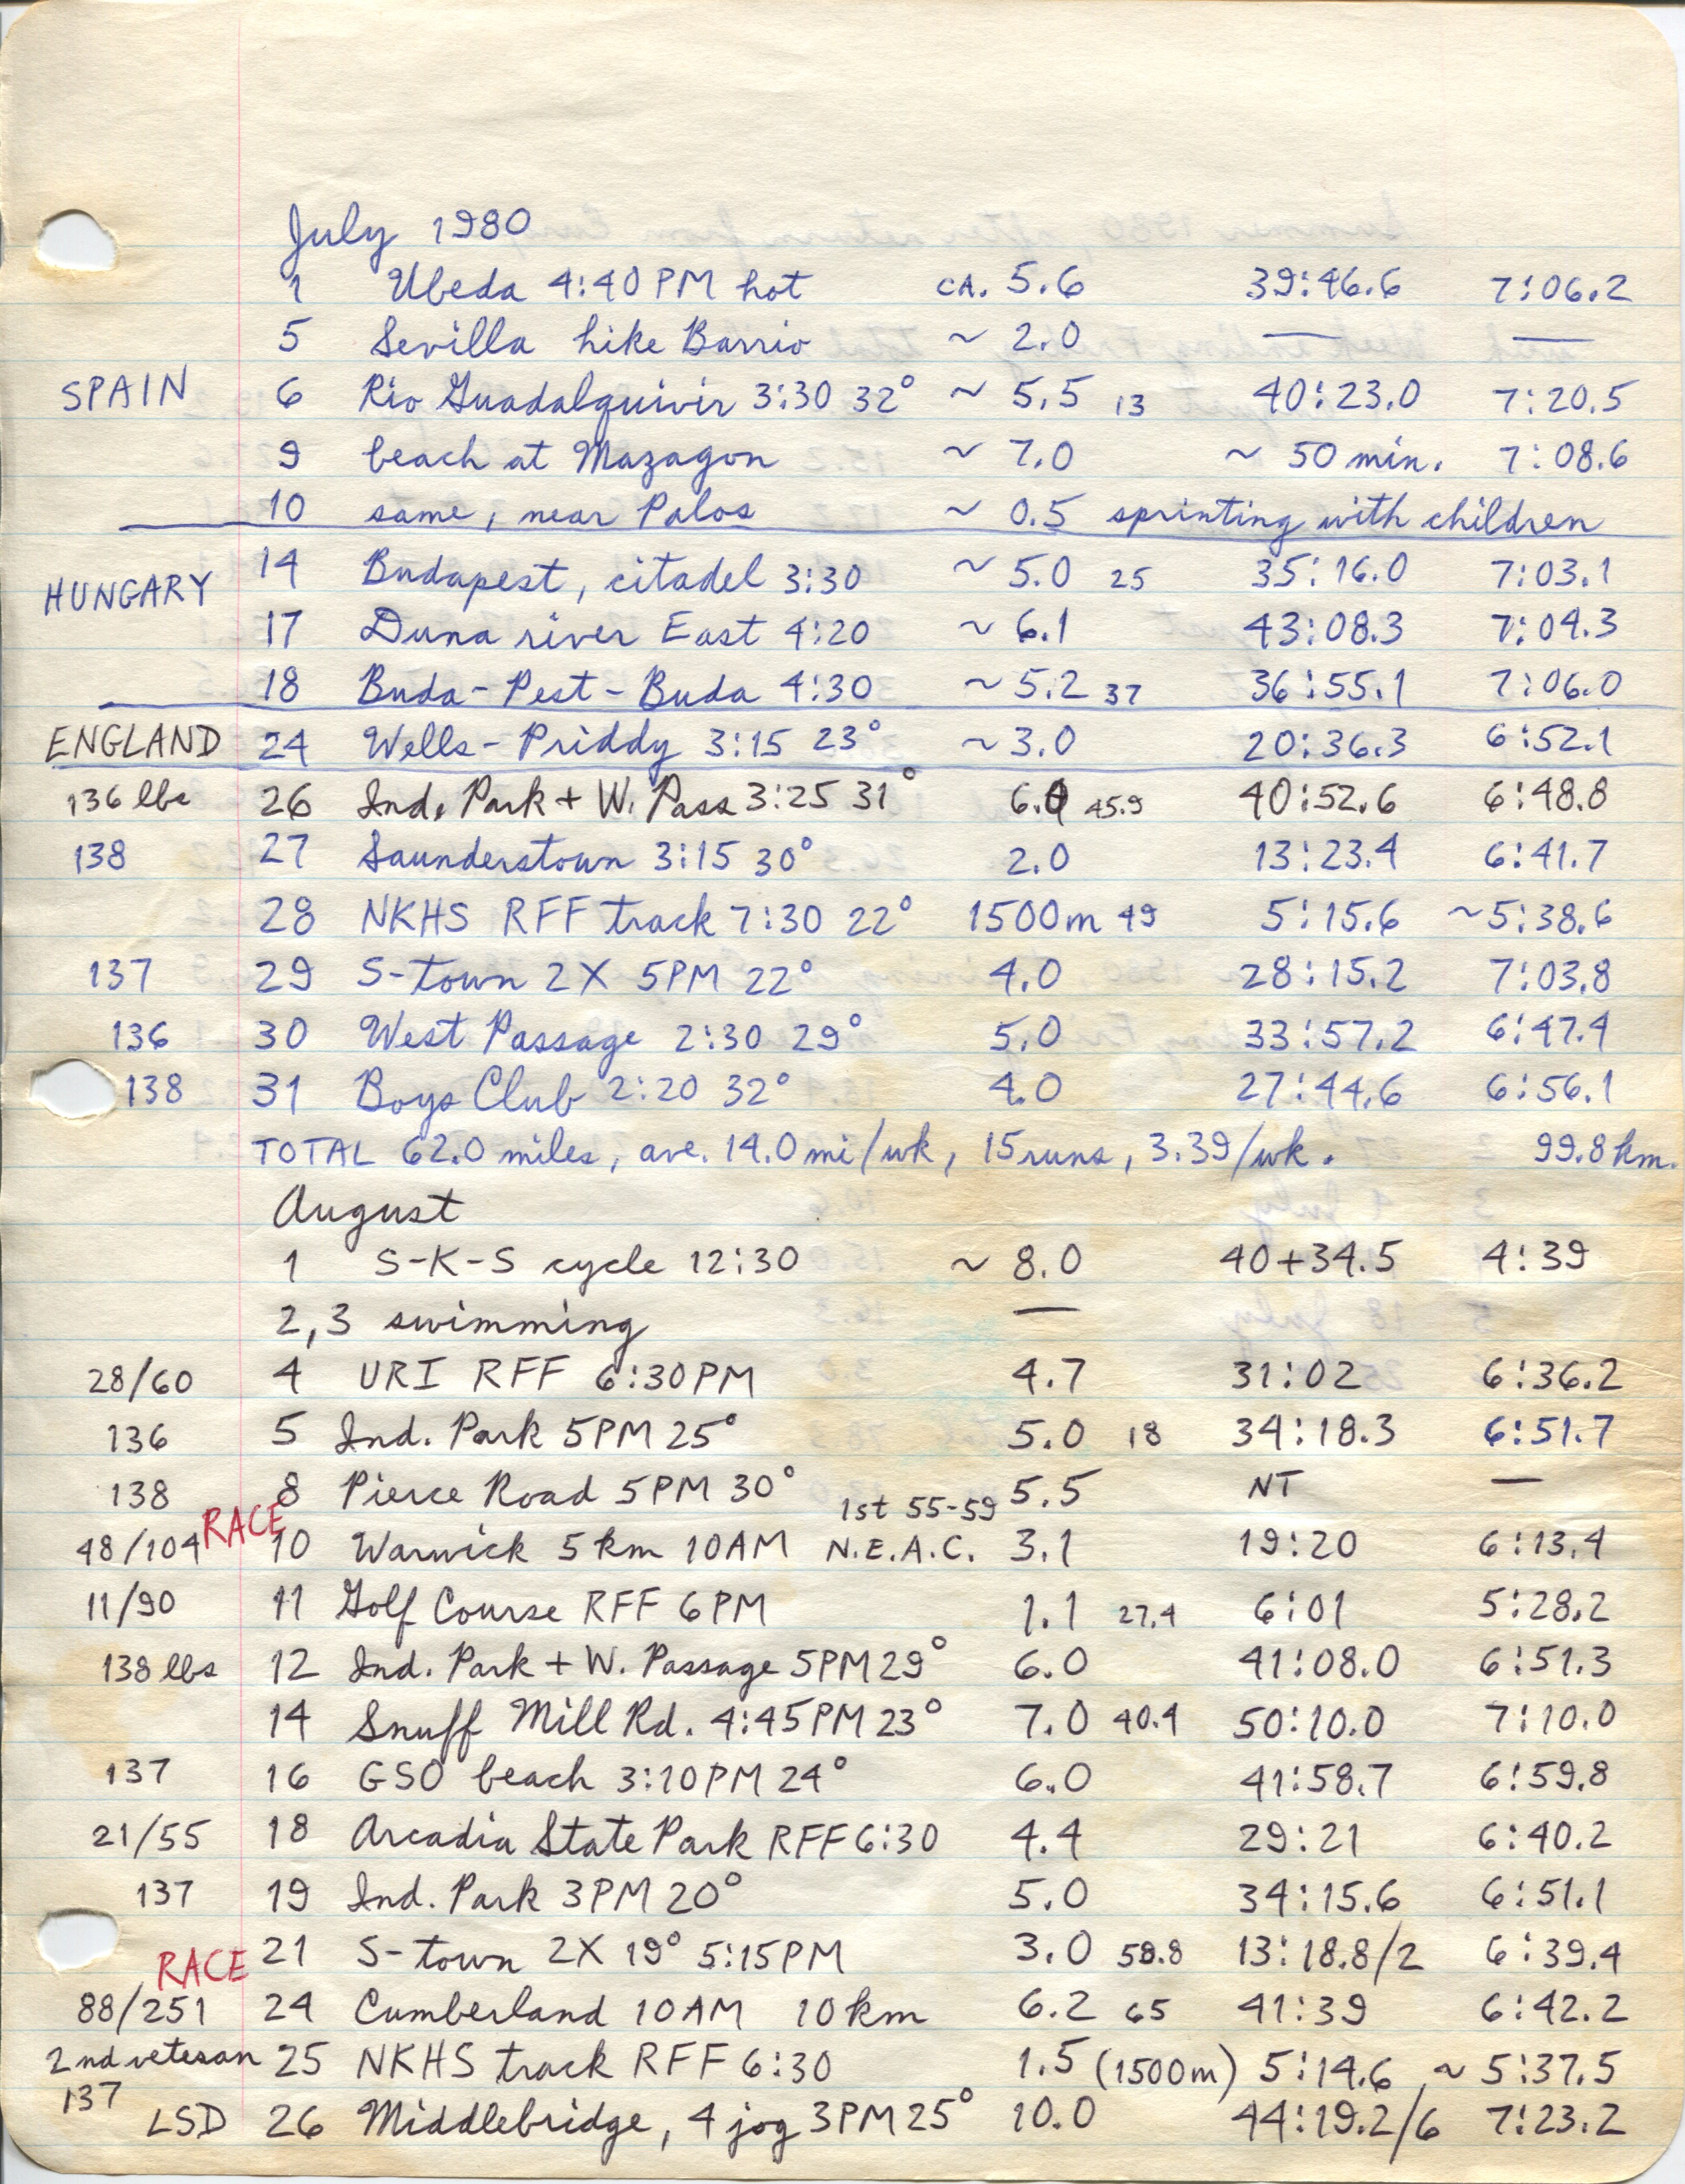 July 1980
1 Ubeda 4:40 PM hot CA. 5.6 39:46.6 7:06.2
5 Sevilla hike Barrio ~ 2.0 — —
SPAIN 6 Rio Guadalquivir 3:30 32° ~ 5.5 13 40:23.0 7:20.5
9 beach at Mazagon ~ 7.0 ~ 50 min. 7:08.6
10 same, near Palos ~ 0.5 sprinting with children
HUNGARY 14 Budapest, citadel 3:30 ~ 5.0 25 35:16.0 7:03.1
17 Duna river East 4:20 ~ 6.1 43:08.3 7:04.3
18 Buda-Pest-Buda 4:30 ~ 5.2 37 36:55.1 7:06.0
ENGLAND 24 Wells-Priddy 3:15 23° ~ 3.0 20:36.3 6:52.1
136 lbs 26 Ind. Park + W. Pass 3:25 31° 6.0 45.9 40:52.6 6:48.8
138 27 Saunderstown 3:15 30° 2.0 13:23.4 6:41.7
28 NKHS RFF track 7:30 22° 1500m 49 5:15.6 ~5:38.6
137 29 S-town 2X 5PM 22° 4.0 28:15.2 7:03.8
136 30 West Passage 2:30 29° 5.0 33:57.2 6:47.4
138 31 Boys Club 2:20 32° 4.0 27:44.6 6:56.1
TOTAL 62.0 miles, ave. 14.0 mi/wk, 15 runs, 3.39/wk. 99.8 km.
August
1 S-K-S cycle 12:30 ~ 8.0 40+34.5 4:39
2,3 swimming —
28/60 4 URI RFF 6:30PM 4.7 31:02 6:36.2
136 5 Ind. Park 5PM 25° 5.0 18 34:18.3 6:51.7
138 8 Pierce Road 5PM 30° 5.5 NT —
RACE 1st 55-59
48/104 10 Warwick 5 km 10AM N.E.A.C. 3.1 19:20 6:13.4
11/90 11 Golf Course RFF 6PM 1.1 27.4 6:01 5:28.2
138 lbs 12 Ind. Park + W. Passage 5PM 29° 6.0 41:08.0 6:51.3
14 Snuff Mill Rd. 4:45PM 23° 7.0 40.4 50:10.0 7:10.0
137 16 GSO beach 3:10PM 24° 6.0 41:58.7 6:59.8
21/55 18 Arcadia State Park RFF 6:30 4.4 29:21 6:40.2
137 19 Ind. Park 3PM 20° 5.0 34:15.6 6:51.1
21 S-town 2X 19° 5:15PM 3.0 58.8 13:18.8/2 6:39.4
RACE
88/251 24 Cumberland 10AM 10 km 6.2 65 41:39 6:42.2
2nd veteran 25 NKHS track RFF 6:30 1.5 (1500m) 5:14.6 ~ 5:37.5
137
LSD 26 Middlebridge, 4 jog 3PM 25° 10.0 44:19.2/6 7:23.2